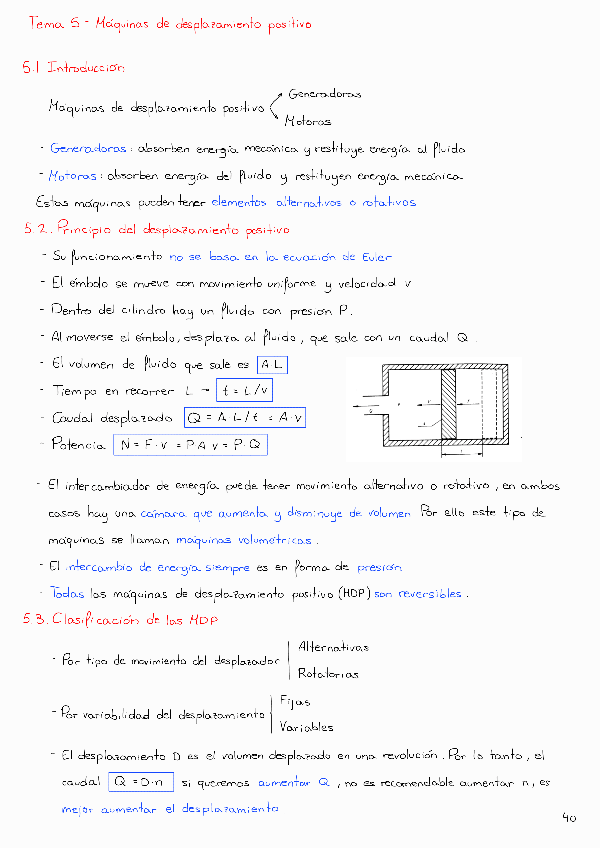 Tema 5 - Máquinas de desplazamiento positivo
5.1 Introducción
Generadoras
Máquinas de desplazamiento positivo
Motoras
- Generadoras: absorben energía mecánica y restituye energía al fluido
- Motoras: absorben energía del fluido y restituyen energía mecánica.
Estas máquinas pueden tener elementos alternativos o rotativos
5.2. Principio del desplazamiento positivo
- Su funcionamiento no se basa en la ecuación de Euler
- El émbolo se mueve con movimiento uniforme y velocidad v
- Dentro del cilindro hay un fluido con presión P.
- Al moverse el émbolo, desplaza al fluido, que sale con un caudal Q.
- El volumen de fluido que sale es A·L
- Tiempo en recorrer L → t = L/v
- Caudal desplazado Q = A·L/t = A·v
- Potencia N = F·v = P·A·v = P·Q
- El intercambiador de energía puede tener movimiento alternativo o rotativo, en ambos
casos hay una cámara que aumenta y disminuye de volumen. Por ello este tipo de
máquinas se llaman máquinas volumétricas.
- El intercambio de energía siempre es en forma de presión
- Todas las máquinas de desplazamiento positivo (MDP) son reversibles.
5.3. Clasificación de las MDP
Alternativas
- Por tipo de movimiento del desplazador
Rotatorias
Fijas
- Por variabilidad del desplazamiento
Variables
- El desplazamiento D es el volumen desplazado en una revolución. Por lo tanto, el
caudal Q = D·n si queremos aumentar Q, no es recomendable aumentar n, es
mejor aumentar el desplazamiento
40